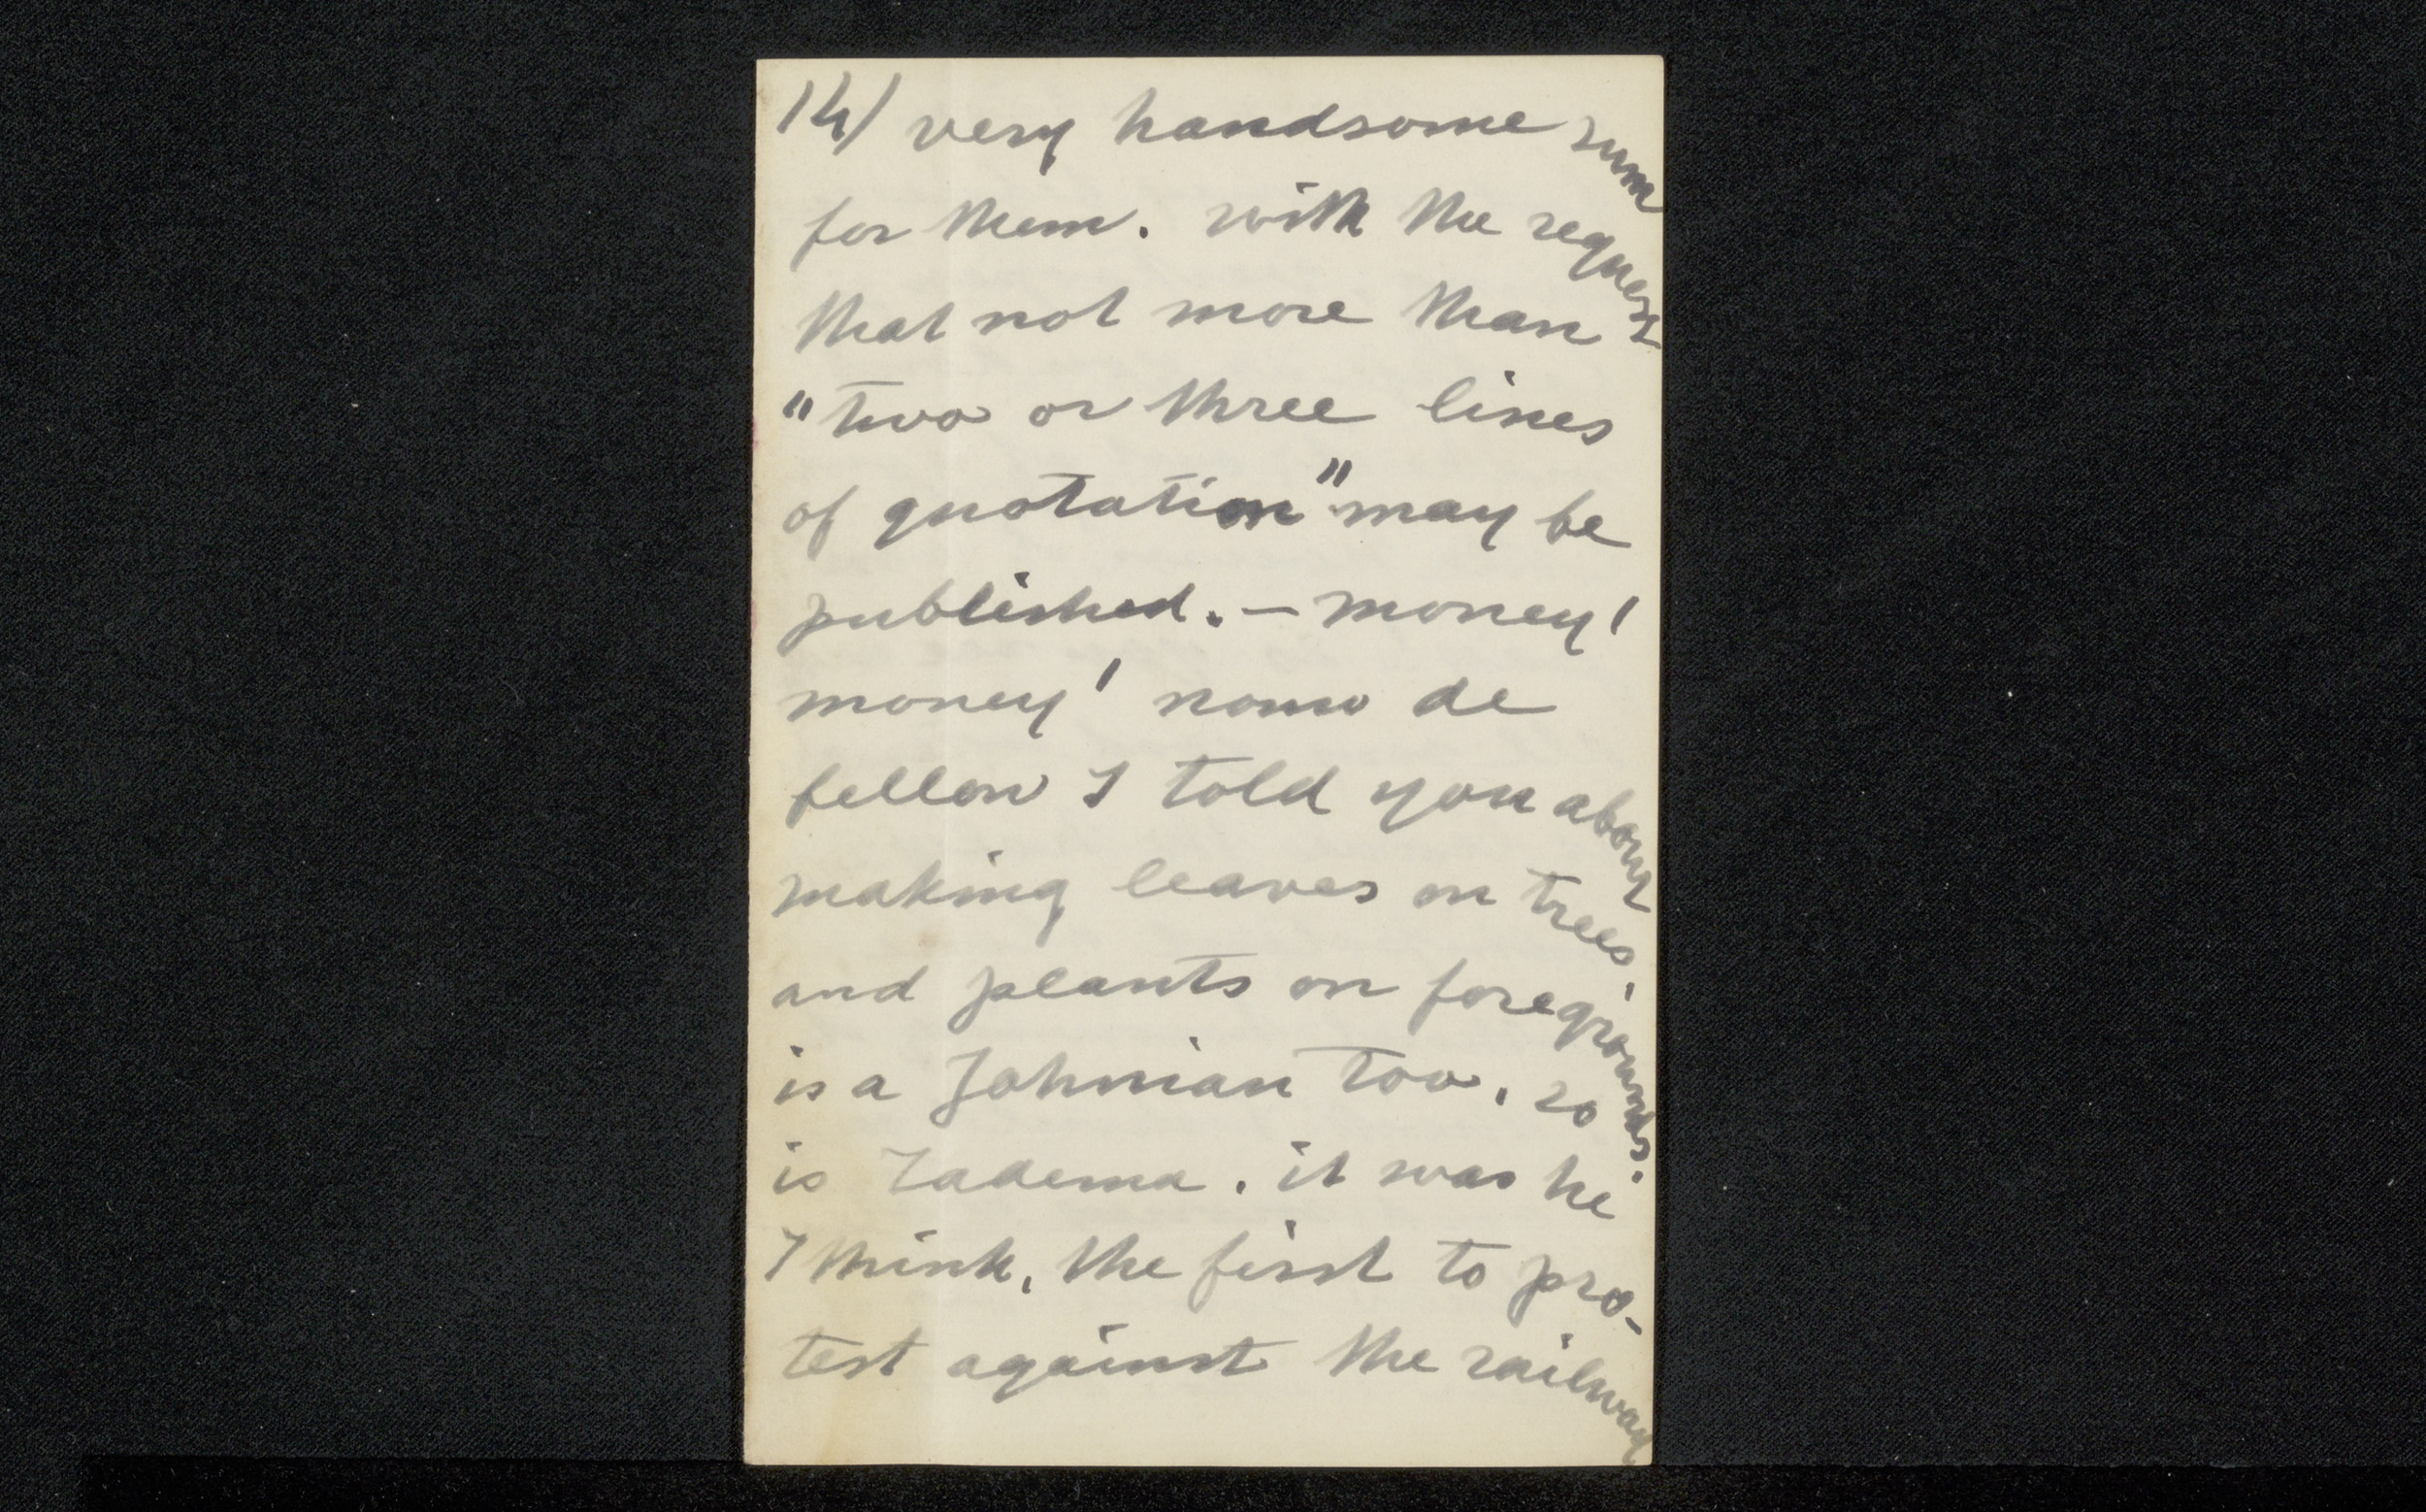 14) very handsome sum
for them. with the request
that not more than
"two or three lines
of quotation" may be
published. – money!
money! nomw de
fellow I told you about
making leaves on trees,
and plants on foregrounds.
is a Johnian too. so
is Tadema. it was he
I think, the first to pro-
test against the railway